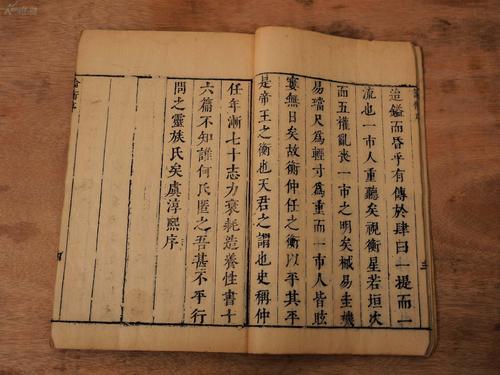 造鎰而昏乎有傳於肆曰一提而一
流也一市人重聽矣視衡星若垣次
而五權亂喪一市之明矣易圭機
易璿尺爲輕寸爲重而一市人皆眩
無日矣故衡仲任之衡以平其平
是帝王之衡也天君之謂也史稱仲
任年漸七十志力衰耗造養性書十
六篇不知誰何氏匿之吾甚不平行
問之靈族氏矣虞淳熙序